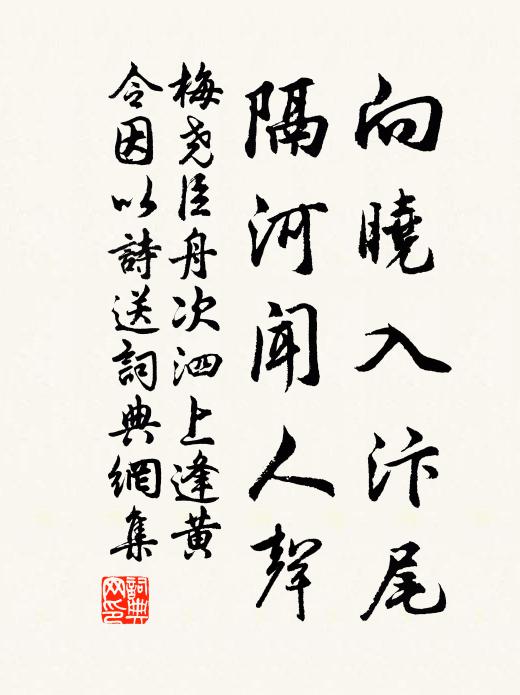 向曉入汴尾
隔河聞人聲
梅堯臣舟次泗上逢黃
令因以詩送詞典網集
詞典
网印